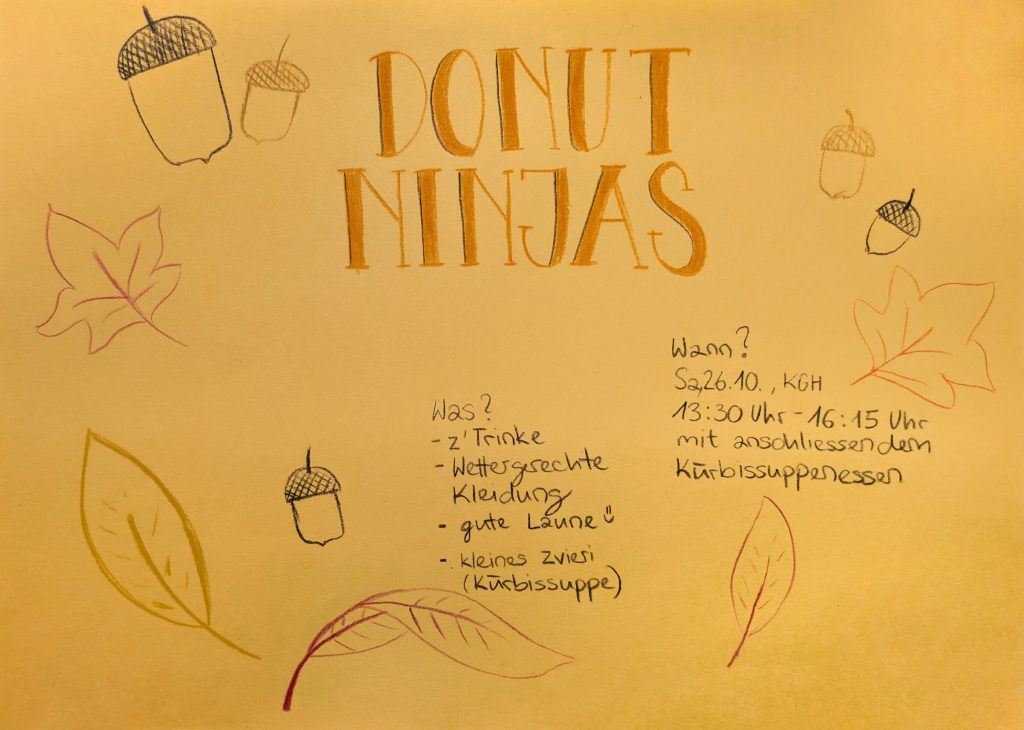 DONUT
NINJAS
Wann?
Sa, 26.10., KGH
13:30 Uhr - 16:15 Uhr
mit anschliessendem
Kürbissuppenessen
Was?
- z'Trinke
- Wettergerechte
Kleidung
- gute Laune
- kleines zvieri
(Kürbissuppe)